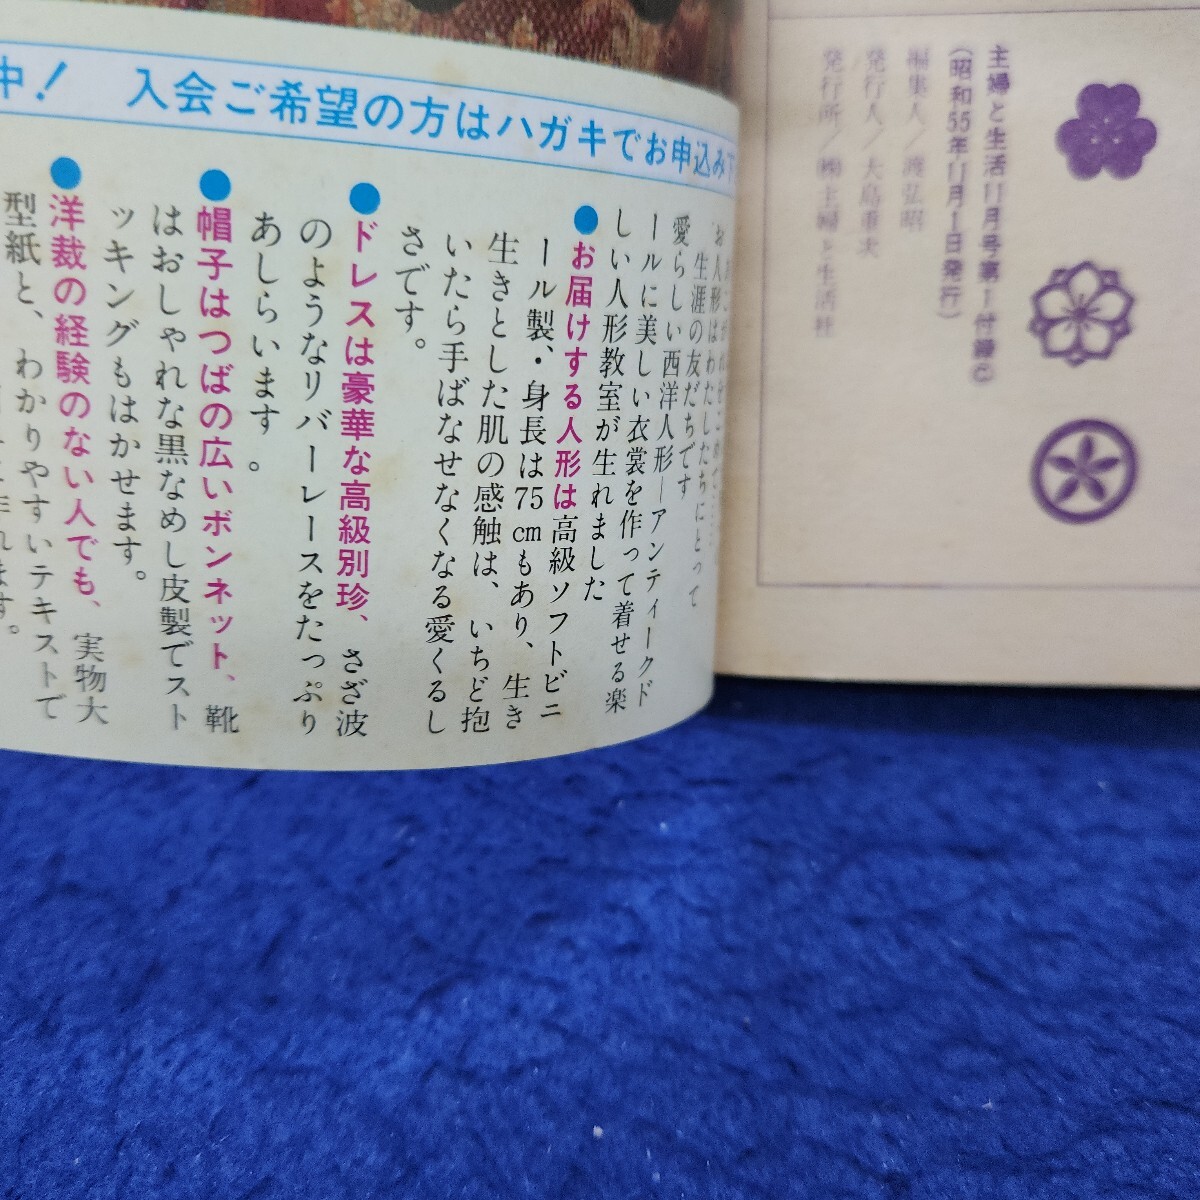 中！ 入会ご希望の方はハガキでお申込み下
お人形はわたしたちにとって
生涯の友だちです
愛らしい西洋人形―アンティークド
ールに美しい衣裳を作って着せる楽
しい人形教室が生れました
●お届けする人形は高級ソフトビニ
ール製・身長は75cmもあり、生き
生きとした肌の感触は、いちど抱
いたら手ばなせなくなる愛くるし
さです。
●ドレスは豪華な高級別珍、さざ波
のようなリバーレースをたっぷり
あしらいます。
●帽子はつばの広いボンネット、靴
はおしゃれな黒なめし皮製でスト
ッキングもはかせます。
●洋裁の経験のない人でも、実物大
型紙と、わかりやすいテキストで
主婦と生活11月号第1付録©
（昭和55年11月1日発行）
編集人／渡弘昭
発行人／大島重次
発行所／㈱主婦と生活社